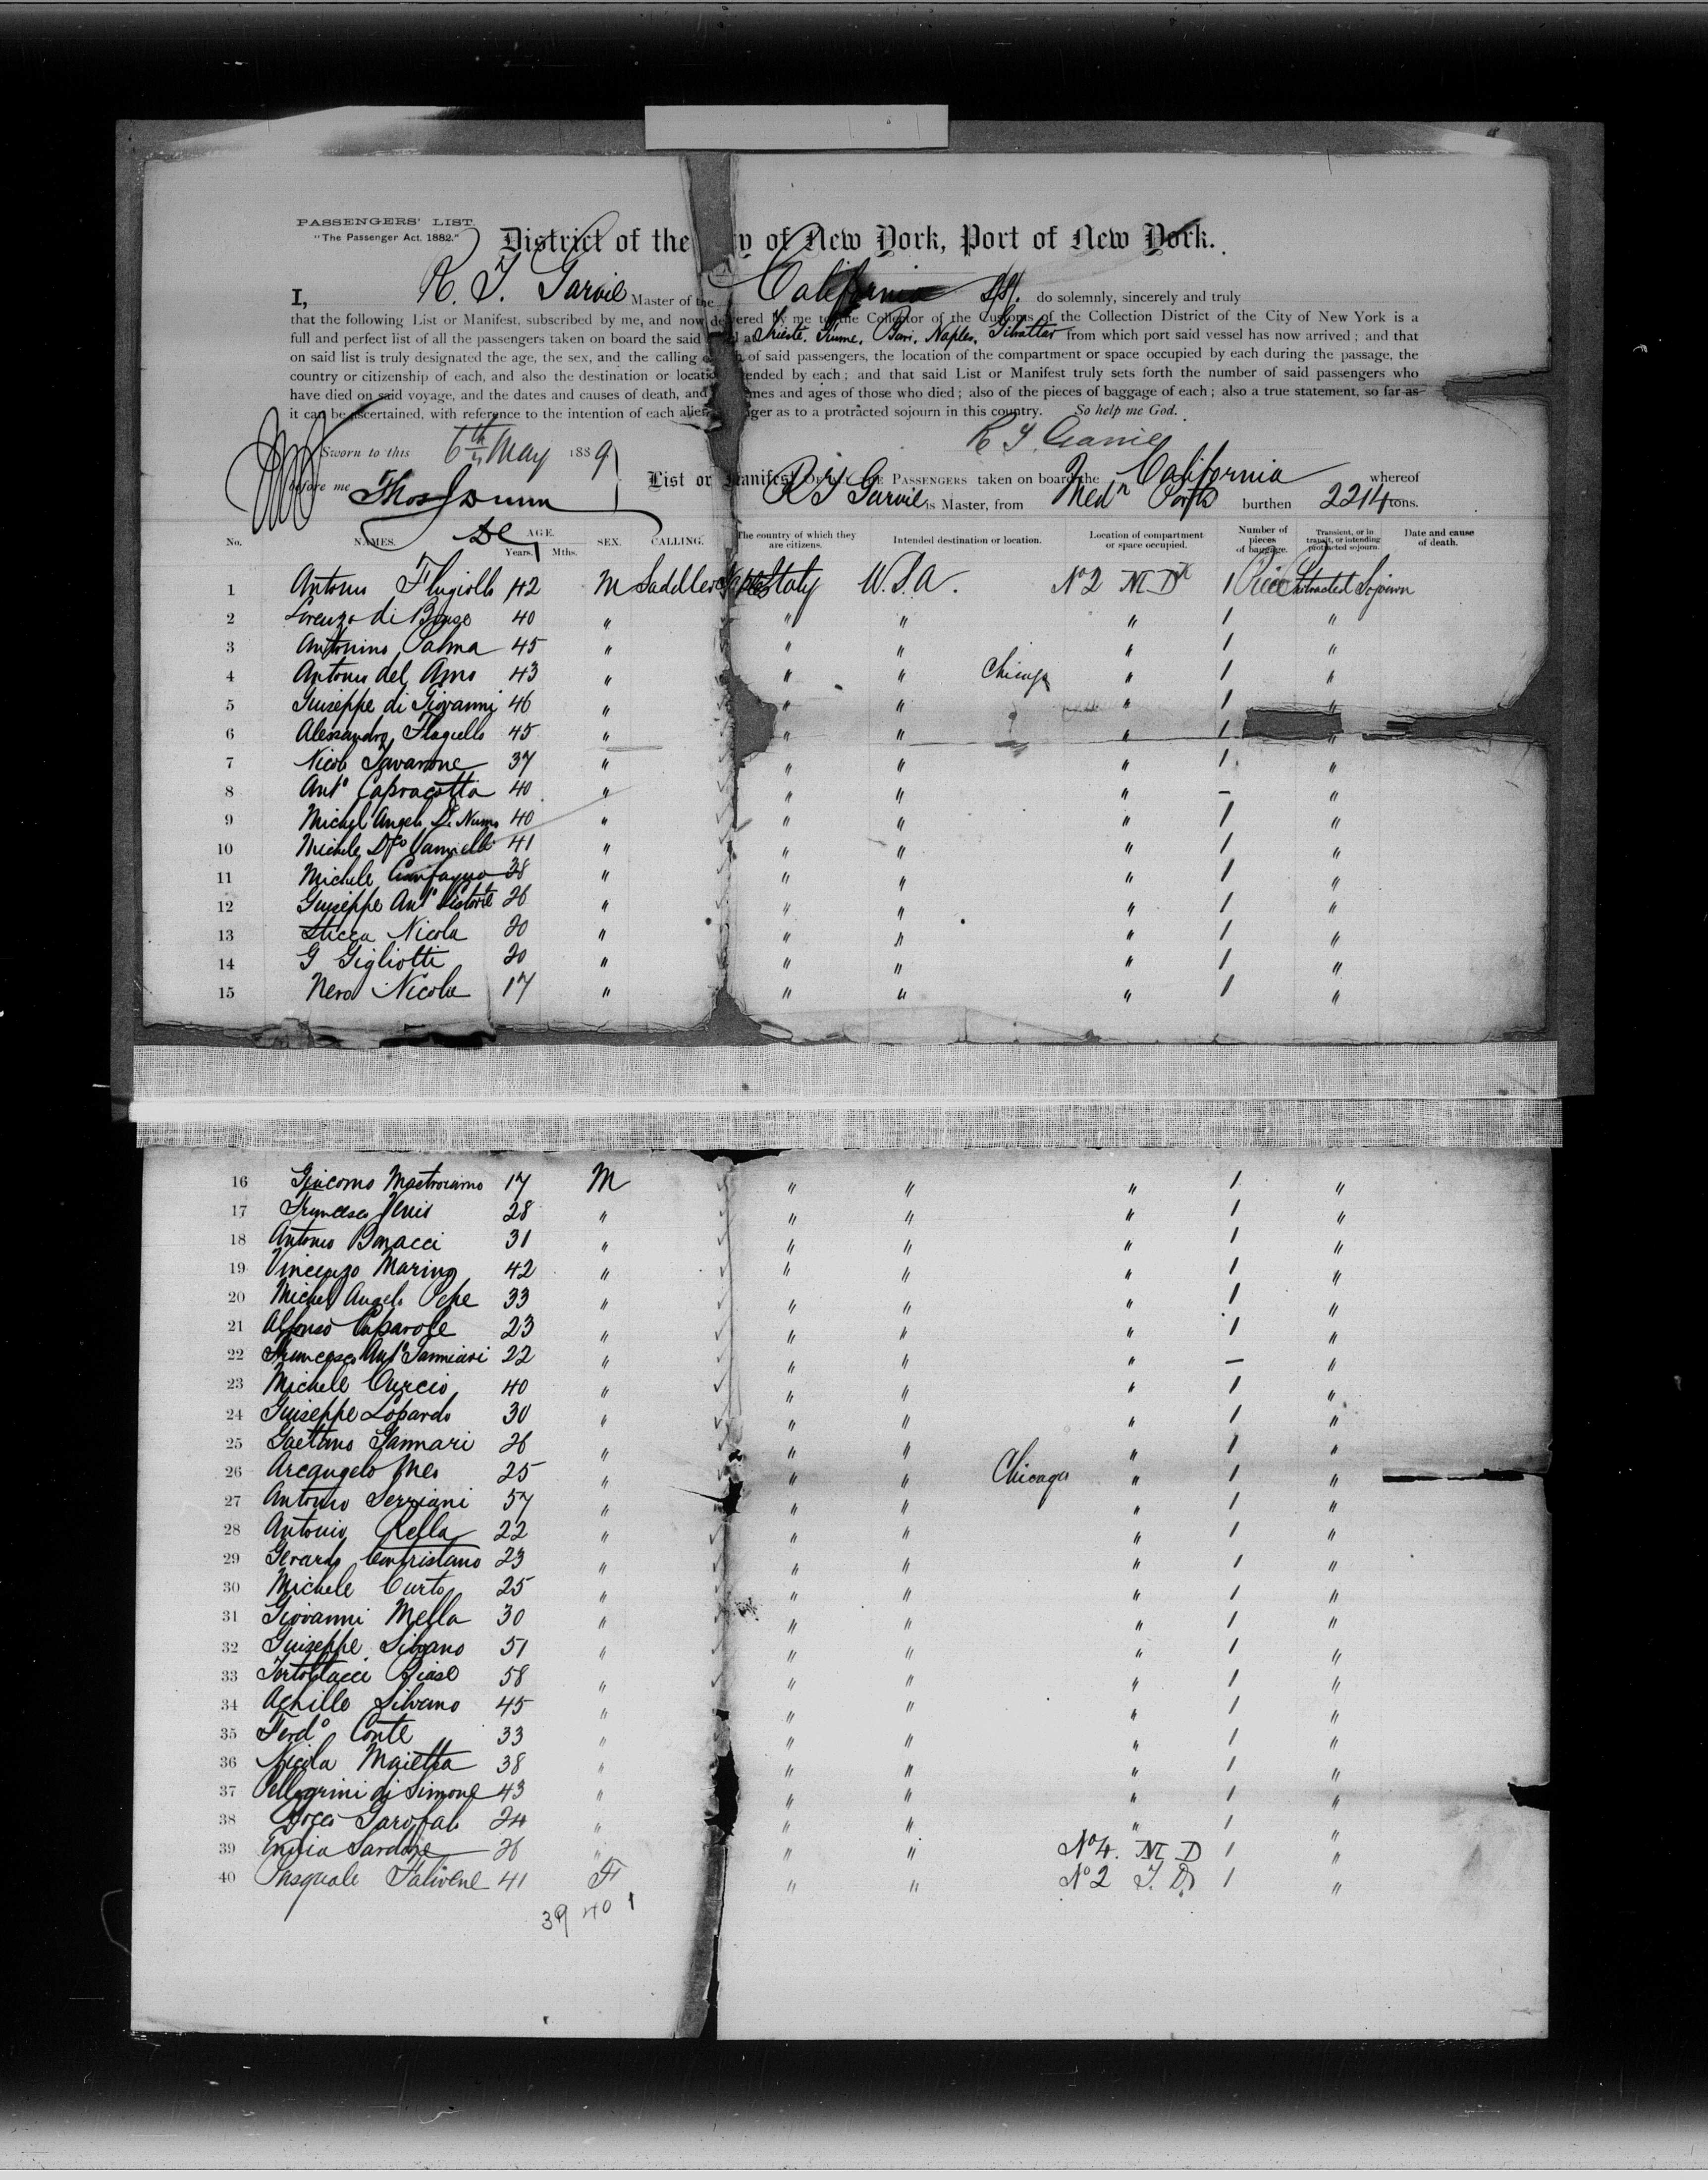 PASSENGERS' LIST.
"The Passenger Act. 1882."
District of the y of New York, Port of New York.
I, R. T. Garvie Master of the California SS. do solemnly, sincerely and truly
that the following List or Manifest, subscribed by me, and now delivered by me to the Collector of the Customs of the Collection District of the City of New York is a
full and perfect list of all the passengers taken on board the said at Trieste. Fiume, Bari, Naples, Gibraltar from which port said vessel has now arrived; and that
on said list is truly designated the age, the sex, and the calling of said passengers, the location of the compartment or space occupied by each during the passage, the
country or citizenship of each, and also the destination or locatio ended by each; and that said List or Manifest truly sets forth the number of said passengers who
have died on said voyage, and the dates and causes of death, and mes and ages of those who died; also of the pieces of baggage of each; also a true statement, so far as
it can be ascertained, with reference to the intention of each alien ger as to a protracted sojourn in this country. So help me God.
R T Garvie
Sworn to this 6th May 1889
before me Thos Dunn
List or Manifest OF ALL THE PASSENGERS taken on board the California whereof
R T Garvie is Master, from Medn Ports burthen 2214 tons.
No. NAMES. AGE. Years. Mths. SEX. CALLING. The country of which they are citizens. Intended destination or location. Location of compartment or space occupied. Number of pieces of baggage. Transient, or in transit, or intending protracted sojourn. Date and cause of death.
1 Antonio 42 M Saddler Italy U.S.A. No 2 M Dk 1 Piece Protracted Sojourn
2 Lorenzo di Biase 40 " " " " 1 "
3 Antonino Palma 45 " " " " 1 "
4 Antonio del Amo 43 " " " Chicago " 1 "
5 Giuseppe di Giovanni 46 " " " " 1 "
6 Alessandro Flagiello 45 " " " " 1 "
7 Nicola Tavarone 37 " " " " 1 "
8 Anto Capracotta 40 " " " " — "
9 Michel Angelo 40 " " " " 1 "
10 Michele 41 " " " " 1 "
11 Michele 38 " " " " 1 "
12 Giuseppe Anto 26 " " " " 1 "
13 Sticca Nicola 20 " " " " 1 "
14 G Gigliotti 20 " " " " 1 "
15 Nero Nicola 17 " " " " 1 "
16 Giacomo 17 M " " " 1 "
17 Francesco 28 " " " " 1 "
18 Antonio Bonacci 31 " " " " 1 "
19 Vincenzo Marino 42 " " " " 1 "
20 Michel Angelo Pepe 33 " " " " 1 "
21 Alfonso Caparole 23 " " " " 1 "
22 Francesco Anto 22 " " " " — "
23 Michele Curcio 40 " " " " 1 "
24 Giuseppe Lopardo 30 " " " " 1 "
25 Gaetano Iannari 26 " " " " 1 "
26 Arcangelo 25 " " " Chicago " 1 "
27 Antonio Serriani 57 " " " " 1 "
28 Antonio Rella 22 " " " " 1 "
29 Gerardo 23 " " " " 1 "
30 Michele Curto 25 " " " " 1 "
31 Giovanni Mella 30 " " " " 1 "
32 Giuseppe Silvano 51 " " " " 1 "
33 Biase 58 " " " " 1 "
34 Achille Silvano 45 " " " " 1 "
35 Ferdo Conte 33 " " " " 1 "
36 Nicola Maietta 38 " " " " 1 "
37 Pellegrini di Simone 43 " " " " 1 "
38 Rocco Garofalo 24 " " " " 1 "
39 Sardone 26 " " " No 4. M D 1 "
40 Pasquale Falivene 41 F " " No 2 F. D. 1 "
39 40 1